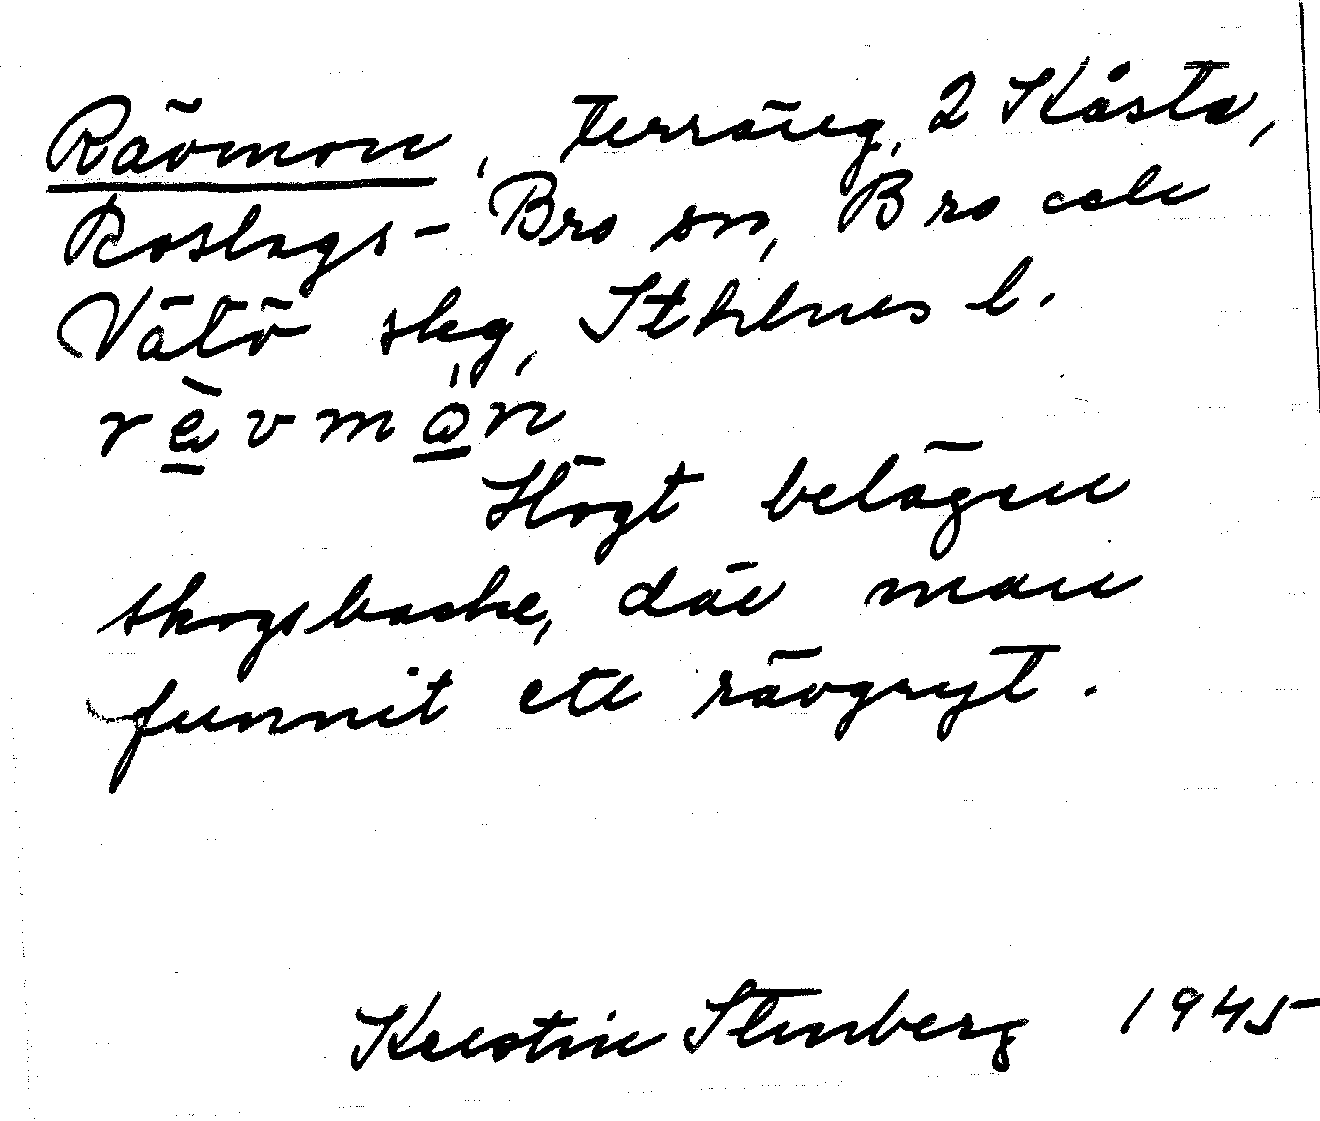 Rävmon, terräng, 2 Kåsta,
Roslags-Bro sn, Bro och
Vätö skg, Sthlms l.
rävmon
Högt belägen
skogsbacke, där man
funnit ett rävgryt.
Kerstin Stenberg 1945